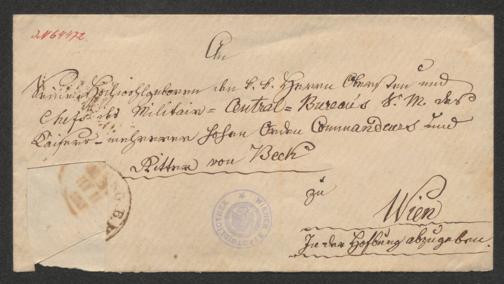 An
Seiner Hochwohlgeboren den k. k. Herrn Obersten und
Chef des Militair-Central-Bureau's Sr. M. des
Kaisers - mehrerer hohen Orden Commandeurs und
Ritter von Beck
zu
Wien
In der Hofburg abzugeben.